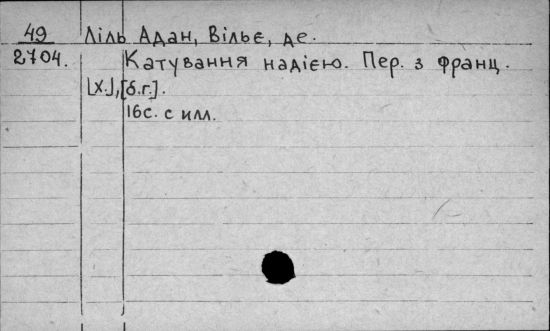 49 Ліль Адан, Вільє, де.
2704. Катування надією. Пер. з франц.
[Х.], [б.г.].
16с. с илл.